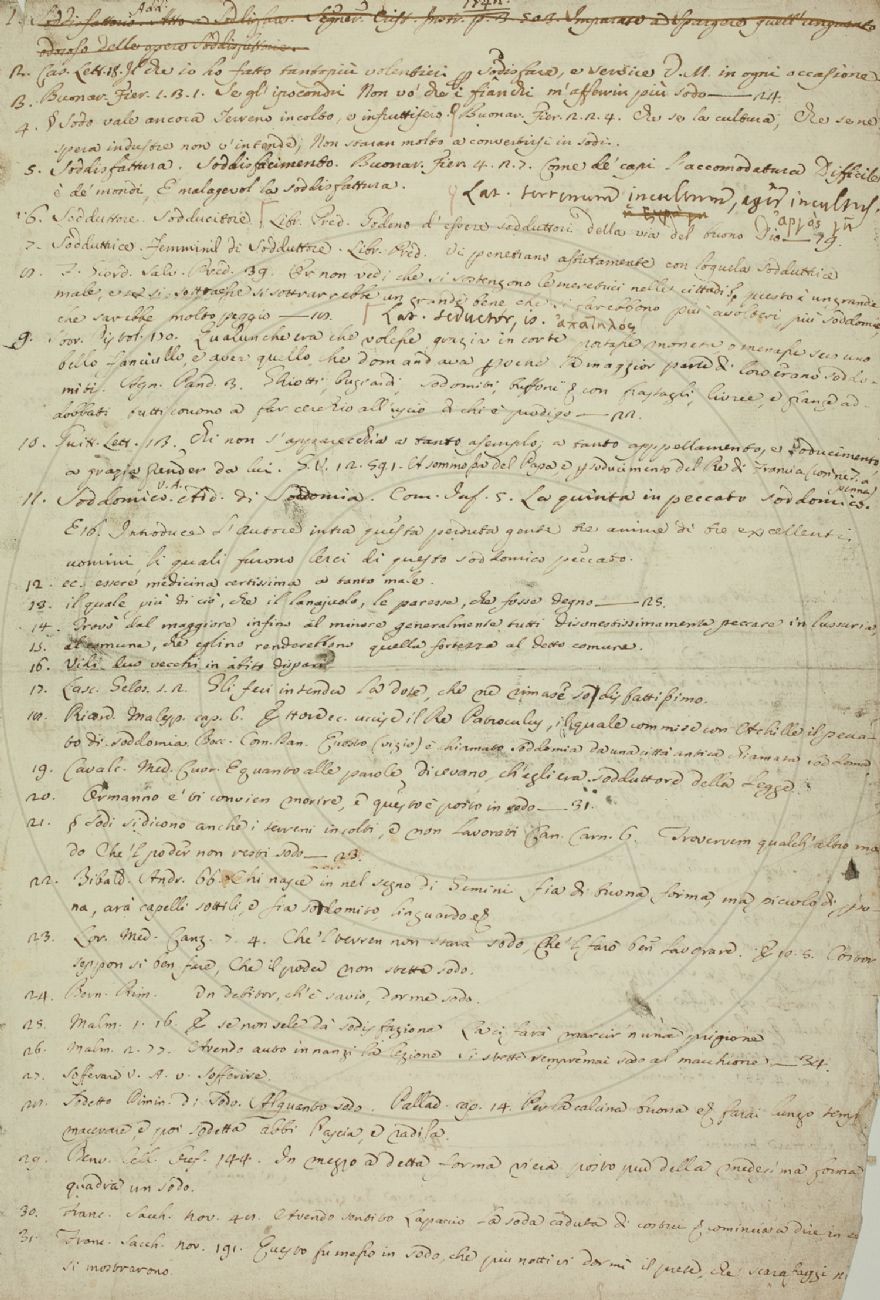 1542.
1. Soddisfatorio. Add. Atto a soddisfare. Segner. Crist. Instr. p. 3. 503. Imparate a spargere quell'unguento
odoroso delle opere Soddisfattorie.
2. Car. Lett. 18. Il che io ho fatto tantopiù volentieri p sodisfare, e servire V. M. in ogni occasione
3. Buonar. Fier. 1. 3. 1. Se gli ipocondri Non vo' che i fianchi m'afferrin più sodo — 24.
4. § Sodo vale ancora Terreno incolto, e infruttifero § Buonar. Fier. 2. 2. 4. Che se la cultura, Che se ne
spera industre non v'intende, Non staran molto a convertirsi in sodi.
5. Soddisfattura. Soddisfacimento. Buonar. Fier. 4. 2. 7. Come de' capi l'accomodatura Difficile
è de' mondi, E malagevol la soddisfattura.
Lat. terrenum incultum, ager incultus.
ἀργὸς γῆ
6. Sodduttore. Sodducitore. Libr. Pred. Godeno d'essere sodduttori della via del buono Dio — 29.
7. Sodduttrice. Femminil di Sodduttore. Libr. Pred. Vi penetrano astutamente con loquela sodduttrice
8. F. Giord. Salv. Pred. 39. Or non vedi che si sostengono le meretrici nelle cittadi? questo è un grande
male, e se si sottraesse si sottrarrebbe un grande bene che si farebbono più avolteri più soddomie,
che sarebbe molto peggio — 18.
Lat. seductor, is. ἀπατηλός
9. Qualunche era che volesse grazia in corte portasse moneta o menasse seco uno
bello fanciullo, e aver quello che domandava p che la maggior parte di loro erano soddo-
miti. Agn. Pand. 3. Ghiotti bugiardi, sodomiti, buffoni § con frastagli, livree, e frange ad-
dobbati tutti scorrono a far cerchio all'uscio di chi è prodigo — 22.
10. Guitt. Lett. 13. Chi non s'apparecchia a tanto asemplo, a tanto apppellamento, e soducimento
a grazia render da lui. G. V. 12. 59. 1. A sommossa del Papa e p soducimento del Re di Francia
11. Soddomico. V. A. Add. di Sodomia. Com. Inf. 5. La quinta in peccato soddomico.
E 16. Introduce l'autore intra questa perduta gente tre anime di tre excellenti
uomini li quali furono lerci di questo soddomico peccato.
12. ec. essere medicina certissima a tanto male.
13. il quale più di ciò, che il lanajuolo, le paresse, che fosse degno — 25.
14. Trovò dal maggiore infino al minore generalmente tutti disonestissimamente peccare in lussuria,
15. al comune, che eglino renderebbono quella fortezza al detto comune.
16. Vidi duo vecchi in abito dispari
17. Lasc. Gelos. 5. 2. Gli feci intender la dote, che ne rimase sodisfattissimo.
18. Ricord. Malesp. cap. 6. Ettore ec. uccise il Re Patroculus, il quale commise con Achille il pecca-
to di soddomia. Bocc. Com. Dan. Questo (vizio) è chiamato soddomia da una città antica chiamata soddoma
19. Cavalc. Med. Cuor. E quanto alle parole, dicevano, ch'egli era sodduttore della Legge.
20. Ermanno e' ti convien morire, e questo è posto in sodo — 31.
21. § Sodi si dicono anche i terreni incolti, e non lavorati Can. Carn. 6. Troverrem qualch'altro mo-
do Che 'l poder non resti sodo — 23.
22. Tibald. Andr. 66. Chi nasce in nel segno di Gemini fia di buona forma, ma piccolo di perso-
na, arà capelli sottili, e fia soddomito linguardo §
23. Lor. Med. Canz. 7. 4. Che 'l terren non starà sodo, Che 'l farò ben lavorare. E 10. 5.
seppon si ben fare, Che il poder non stette sodo.
24. Bern. Rim. Un debitor, ch'è savio, dorme sodo.
25. Malm. 1. 16. E se non se le dà sodisfazione La ci farà marcir n'una prigione
26. Malm. 2. 77. Avendo avuto innanzi la lezione si stette sempremai sodo al macchione — 34.
27. Sofferare v. A. v. Sofferire.
28. Sodetto Dimin. di Sodo. Alquanto sodo. Pallad. 14. Per la calcina buona § farai lungo tempo
macerare, e poi sodetta abbi l'ascia, e radila.
29. Benv. Cell. Oref. 144. In mezzo a detta forma v'era posto pur della medesima forma
quadra un sodo.
30. Franc. Sacch. nov. 48. Avendo sentito Lapaccio la soda caduta di costui § comincia a dire in
31. Franc. Sacch. nov. 191. Questo fu messo in sodo, che più notti vi dormì il prete, che scarafaggi
si mostrarono.